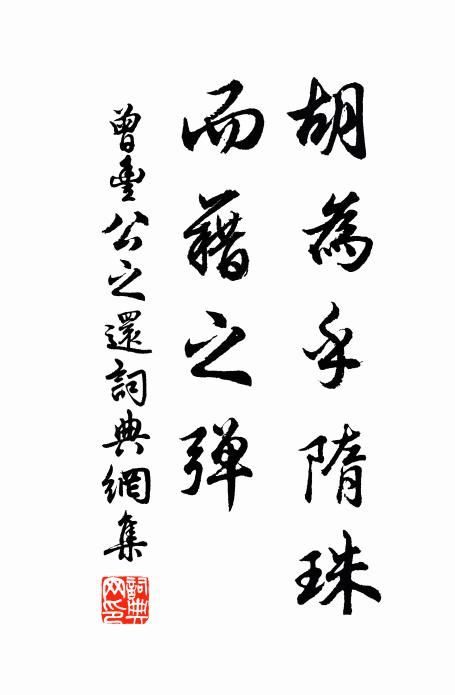 胡為乎隋珠
而藉之弹
曾豊公之還詞典網集
詞典
网印